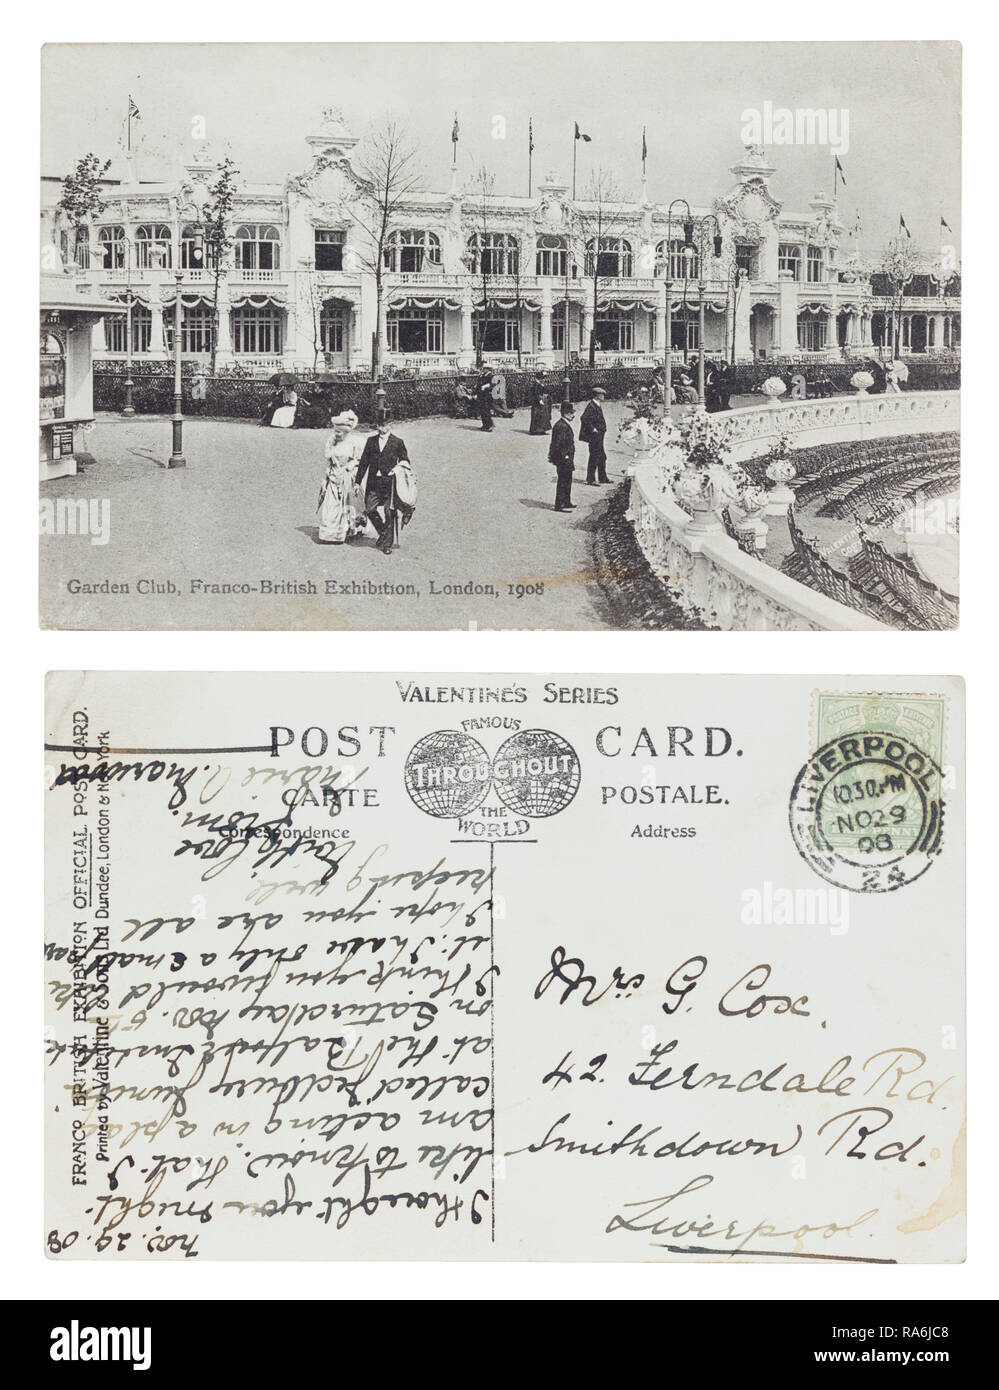 Garden Club, Franco-British Exhibition, London, 1908
VALENTINE'S SERIES
POST CARD.
FAMOUS
THROUGHOUT
THE
WORLD
CARTE POSTALE.
Correspondence
Address
FRANCO BRITISH EXHIBITION OFFICIAL POST CARD.
Printed by Valentine & Sons Ltd Dundee, London & New York
LIVERPOOL
10.30.PM
NO 29
08
24
Nov. 29. 08
I thought you might
like to know that I
am acting in a play
called
at the
on Saturday Nov.
I think you would like
it. I have only a small part
I hope you are all
keeping well
With love
from
Marie A.
Mrs G. Cox.
42. Ferndale Rd.
Smithdown Rd.
Liverpool.
alamy
Image ID: RA6JC8
www.alamy.com